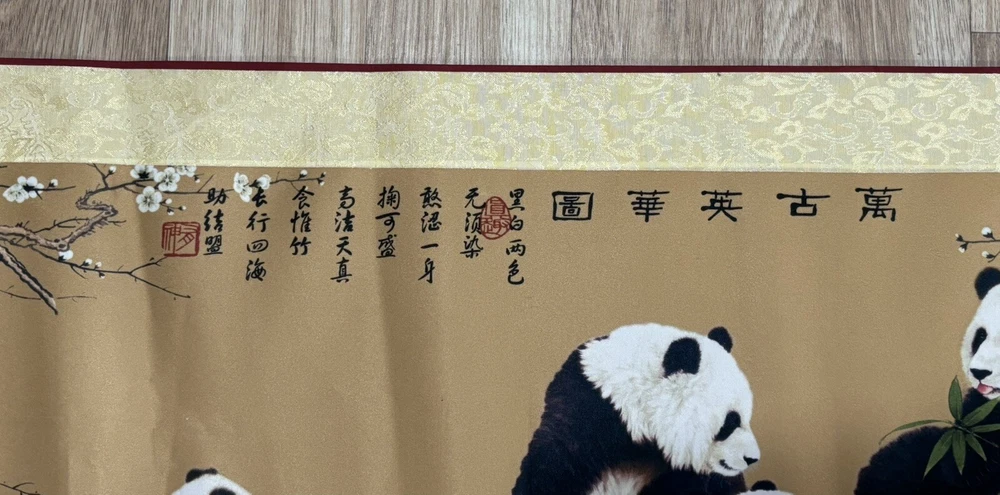 萬古英華圖
黑白两色
无须染
敢涩一身
掬可盛
高洁天真
食惟竹
长行四海
助结盟